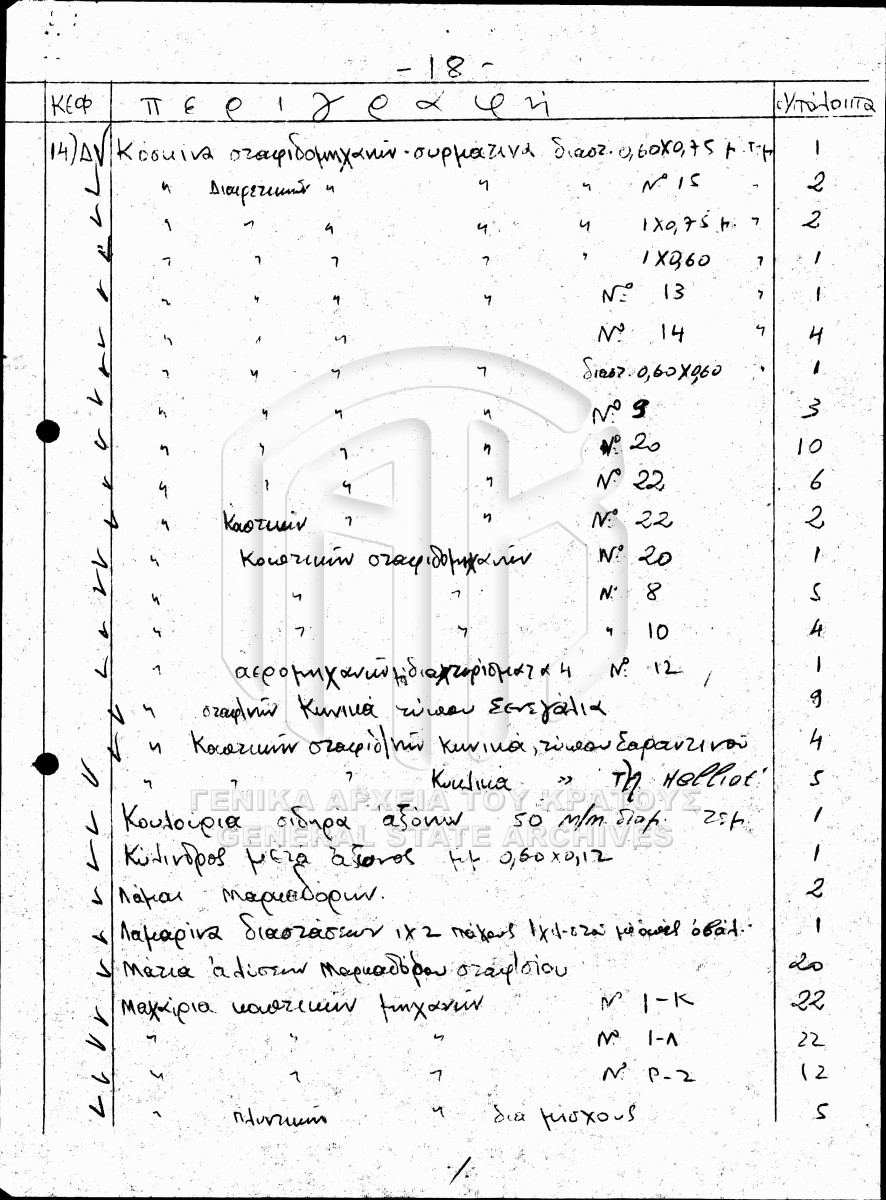 - 18 -
ΚΕΦ περιγραφή Ὑπόλοιπα
14) ΔΝ Κόσκινα σταφιδομηχανῶν-συρμάτινα διαστ. 0,60Χ0,75 μ. τεμ 1
" Διαιρετικῶν " " " Νº 15 " 2
" " " " " 1Χ0,75 μ. " 2
" " " " " 1Χ0,60 " 1
" " " " Νº 13 " 1
" " " Νº 14 " 4
" " " " διαστ. 0,60Χ0,60 " 1
" " " " Νº 9 3
" " " " Νº 20 10
" " " " Νº 22 6
" Κοπτικῶν " " Νº 22 2
" Κοπτικῶν σταφιδομηχανῶν Νº 20 1
" " " Ν. 8 5
" " " " 10 4
" ἀερομηχανῶν διαχωρίσματα 4 Νº 12 1
" σταφ/νῶν Κωνικά τύπου Σενεγάλια 9
" Κοπτικῶν σταφιδ/νῶν κωνικά, τύπου Σαραντινού 4
" " " Κυκλικά » Helliot 5
Κουλούρια σιδηρά ἀξόνων 50 m/m διαμ. τεμ 1
Κύλινδρος μετά ἄξονος μμ 0,60Χ0,12 1
Λάμαι Μαρκαδόρων. 2
Λαμαρίνα διαστάσεων 1Χ2 πάχους ὀβάλ. 1
Μάτια ἁλύσεων Μαρκαδόρου σταφ/σίου 20
Μαχαίρια κοπτικῶν μηχανῶν Νº Ι-Κ 22
" " " Νº Ι-Λ 22
" " " Νº Ρ-2 12
" Πλυντικῶν " διά μίσχους 5
./.
ΓΕΝΙΚΑ ΑΡΧΕΙΑ ΤΟΥ ΚΡΑΤΟΥΣ
GENERAL STATE ARCHIVES